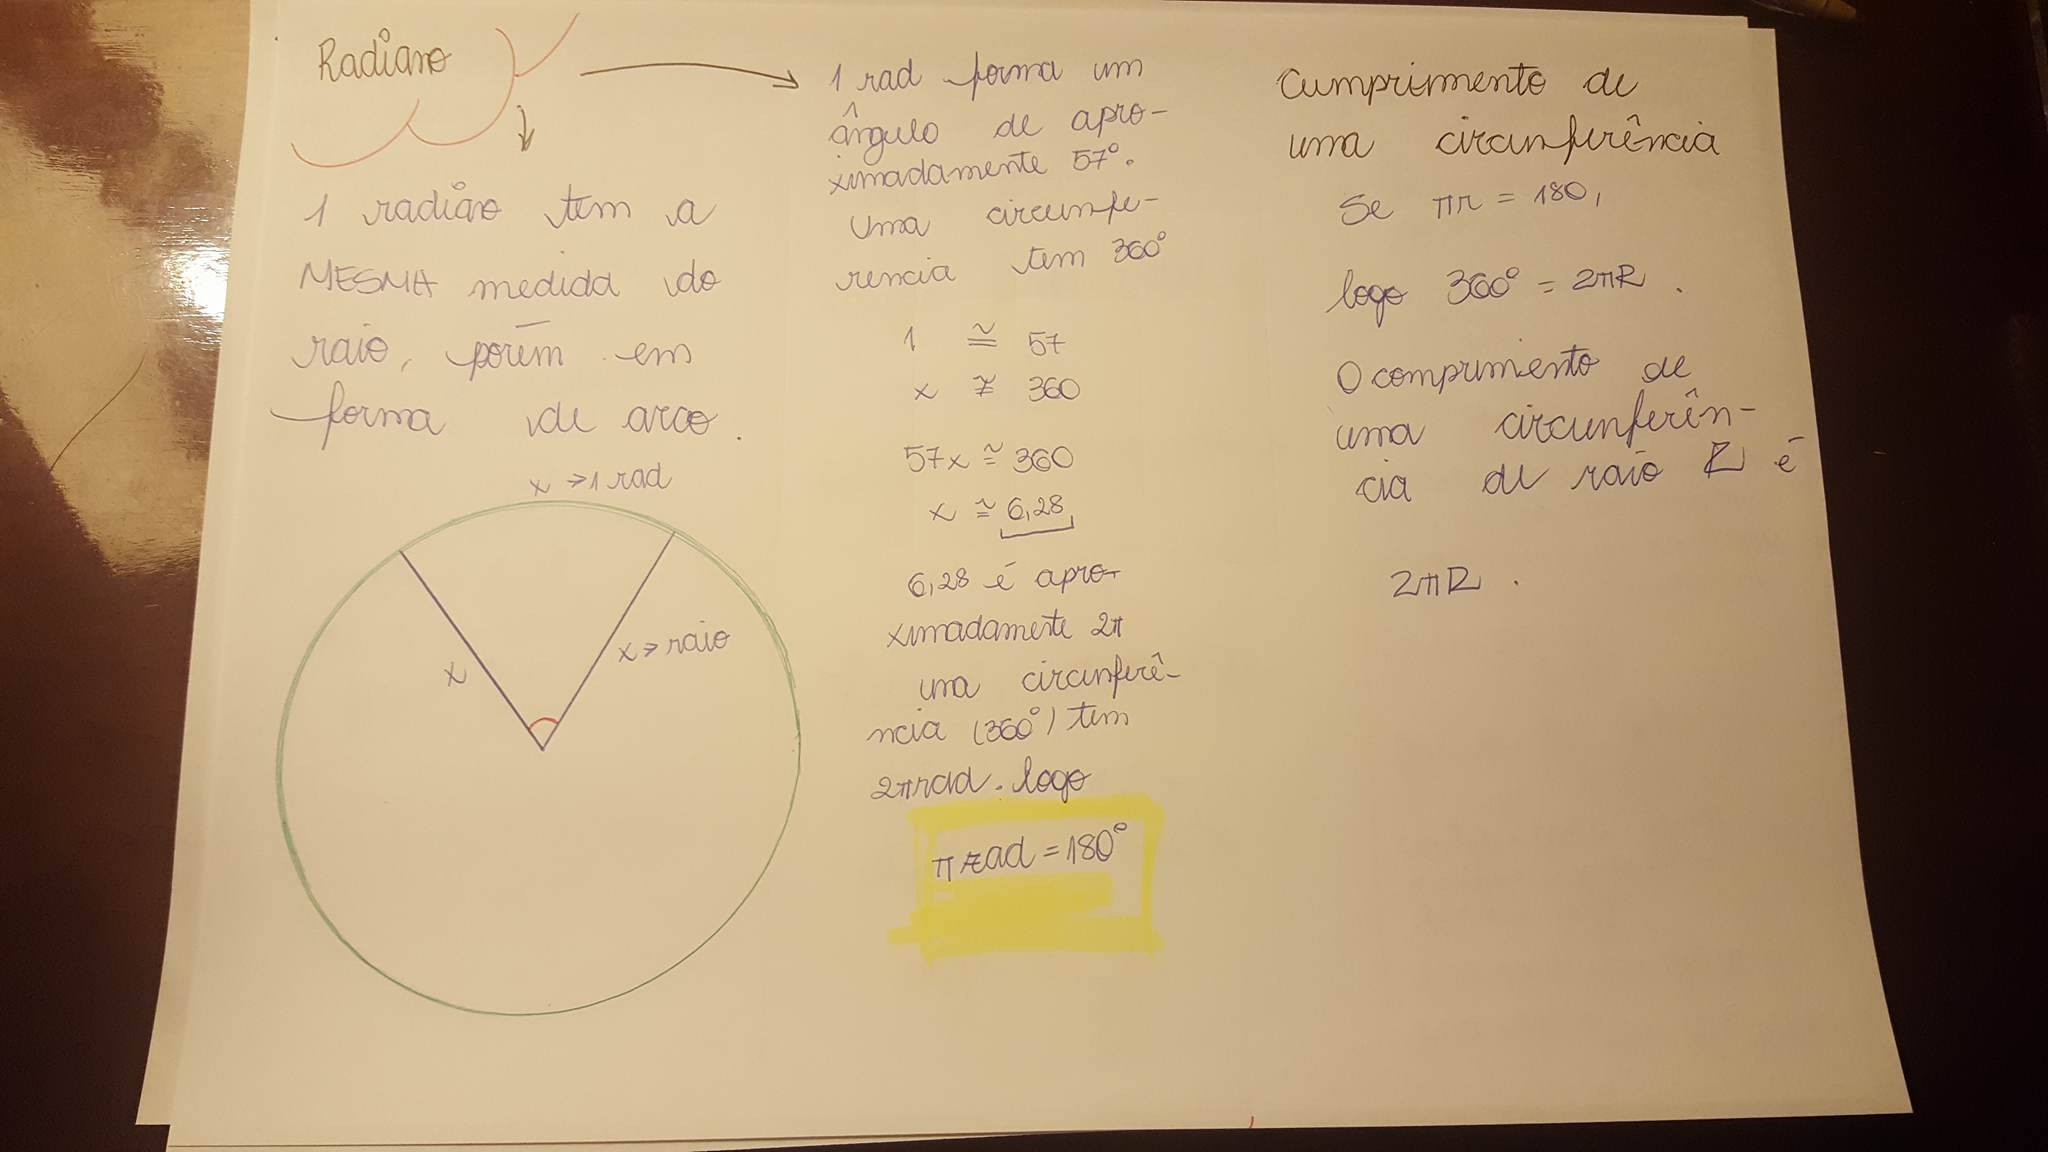 Radiano
1 radiano tem a
MESMA medida do
raio, porém em
forma de arco.
x → 1 rad
x
x → raio
1 rad forma um
ângulo de apro-
ximadamente 57°.
Uma circunfe-
rencia tem 360°
1 ≅ 57
x ≅ 360
57x ≅ 360
x ≅ 6,28
6,28 é apro-
ximadamente 2π
uma circunferê-
ncia (360°) tem
2πrad. logo
π rad = 180°
Cumprimento de
uma circunferência
Se πr = 180,
logo 360° = 2πR.
O comprimento de
uma circunferên-
cia de raio R é
2πR.